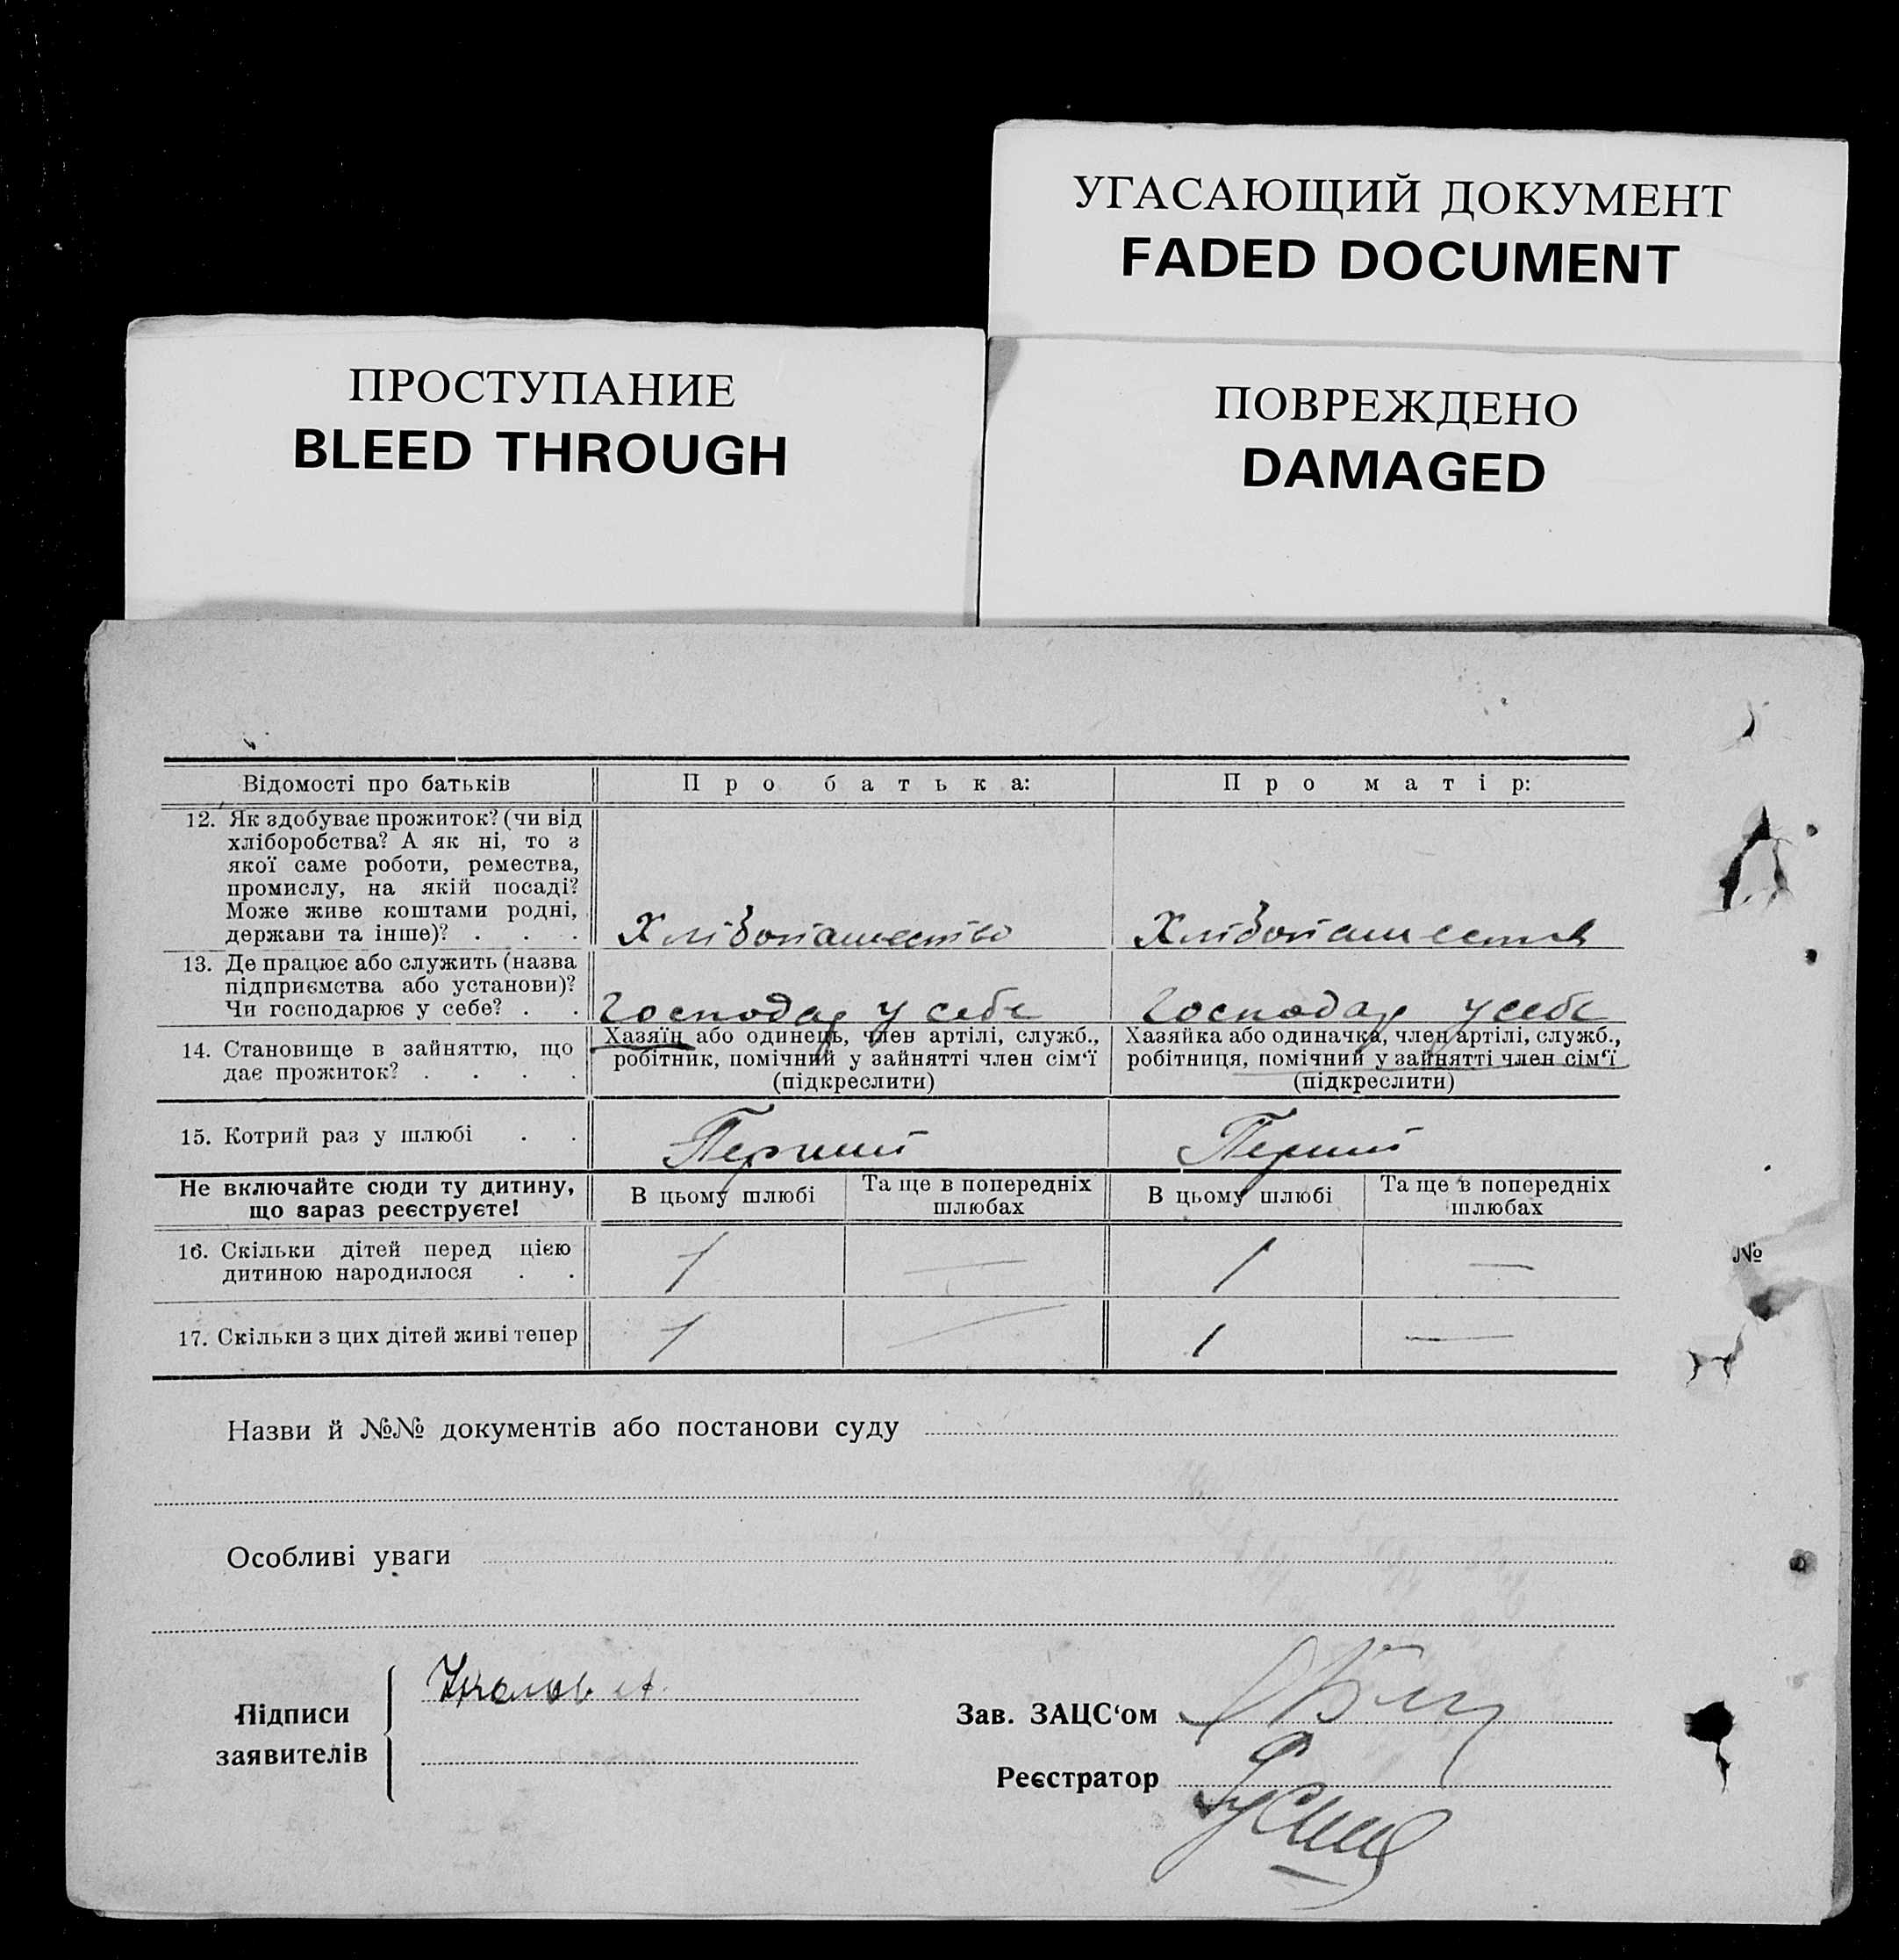 УГАСАЮЩИЙ ДОКУМЕНТ
FADED DOCUMENT
ПРОСТУПАНИЕ
BLEED THROUGH
ПОВРЕЖДЕНО
DAMAGED
Відомості про батьків
Про батька:
Про матір:
12. Як здобуває прожиток? (чи від
хліборобства? А як ні, то з
якої саме роботи, ремества,
промислу, на якій посаді?
Може живе коштами родні,
держави та інше)? . . .
Хлібопашество
Хлібопашество
13. Де працює або служить (назва
підприємства або установи)?
Чи господарює у себе? . .
Господар у себе
Господар у себе
14. Становище в зайняттю, що
дає прожиток? . . . .
Хазяїн або одинець, член артілі, служб.,
робітник, помічний у зайнятті член сім‘ї
(підкреслити)
Хазяйка або одиначка, член артілі, служб.,
робітниця, помічний у зайнятті член сім‘ї
(підкреслити)
15. Котрий раз у шлюбі . .
Перший
Перший
Не включайте сюди ту дитину,
що зараз реєструєте!
В цьому шлюбі
Та ще в попередніх
шлюбах
В цьому шлюбі
Та ще в попередніх
шлюбах
16. Скільки дітей перед цією
дитиною народилося . .
1
—
1
—
№
17. Скільки з цих дітей живі тепер
1
—
1
—
Назви й №№ документів або постанови суду
Особливі уваги
Підписи
заявителів
Зав. ЗАЦС‘ом
Реєстратор